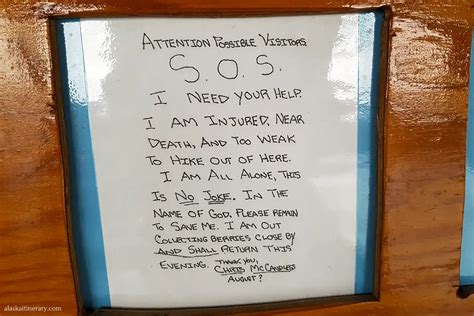 ATTENTION POSSIBLE VISITORS
S.O.S.
I NEED YOUR HELP.
I AM INJURED, NEAR
DEATH, AND TOO WEAK
TO HIKE OUT OF HERE.
I AM ALL ALONE, THIS
IS NO JOKE. IN THE
NAME OF GOD, PLEASE REMAIN
TO SAVE ME. I AM OUT
COLLECTING BERRIES CLOSE BY
AND SHALL RETURN THIS
EVENING. THANK YOU,
CHRIS MCCANDLESS
AUGUST?
alaskaitinerary.com